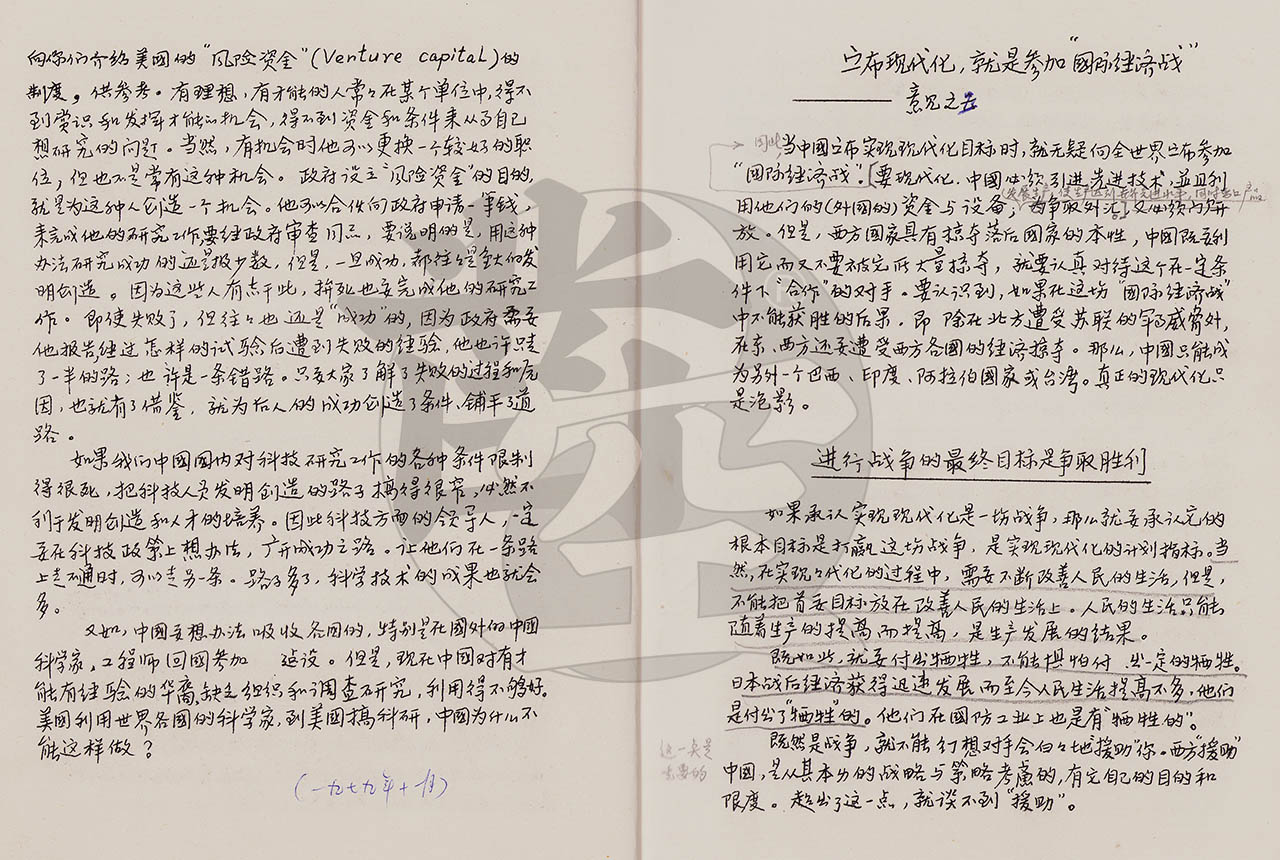 向你们介绍美國的“风险资金”(Venture capital)的
制度，供参考。有理想，有才能的人常々在某个单位中，得不
到赏识和发挥才能的机会，得不到资金和条件来从事自己
想研究的问题。当然，有机会时他可以更换一个较好的职
位，但也不是常有这种机会。政府设立“风险资金”的目的，
就是为这种人创造一个机会。他可以合伙向政府申请一笔钱，
来完成他的研究工作要经政府审查同意，要说明的是，用这种
办法研究成功的还是极少数，但是，一旦成功，都往々是重大的发
明创造。因为这些人有志于此，拚死也要完成他的研究工
作。即使失败了，但往々也还是“成功”的，因为政府需要
他报告经过怎样的试验后遭到失败的经验，他也许只走
了一半的路；也许是一条错路。只要大家了解了失败的过程和原
因，也就有了借鉴，就为后人的成功创造了条件、铺平了道
路。
如果我们中國國内对科技研究工作的各种条件限制
得很死，把科技人员发明创造的路子搞得很窄，必然不
利于发明创造和人才的培养。因此科技方面的领导人，一定
要在科技政策上想办法，广开成功之路。让他们在一条路
上走不通时，可以走另一条。路子多了，科学技术的成果也就会
多。
又如，中國要想办法吸收各国的，特别是在國外的中國
科学家，工程师回國参加 建设。但是，现在中國对有才
能有经验的华裔缺乏组织和调查研究，利用得不够好。
美國利用世界各國的科学家到美國搞科研，中國为什么不
能这样做？
(一九七九年十一月)
宣布现代化，就是参加“國际经济战”
——意见之五
因此，当中國宣布实现现代化目标时，就无疑向全世界宣布参加
“國际经济战”。要现代化．中國必须引进先进技术，並且利
用他们的(外國的)资金与设备；为争取外汇又必须向外开
放。但是，西方國家具有掠夺落后國家的本性，中國既要利
用它而又不要被它所大量掠夺，就要认真对待这个在一定条
件下“合作”的对手。要认识到，如果在这场“國际经济战”
中不能获胜的后果，即除在北方遭受苏联的军事威胁外，
在东、西方还要遭受西方各國的经济掠夺。那么，中國只能成
为另外一个巴西、印度、阿拉伯國家或台湾。真正的现代化只
是泡影。
进行战争的最终目标是争取胜利
如果承认实现现代化是一场战争，那么就要承认它的
根本目标是打赢这场战争，是实现现代化的计划指标。当
然，在实现々代化的过程中，需要不断改善人民的生活，但是，
不能把首要目标放在改善人民的生活上。人民的生活只能
随着生产的提高而提高，是生产发展的结果。
既如此，就要付出牺牲，不能惧怕付出一定的牺牲。
日本战后经济获得迅速发展而至今人民生活提高不多，他们
是付出了“牺牲”的。他们在國防工业上也是有“牺牲的”。
既然是战争，就不能幻想对手会白々地“援助”你。西方“援助”
中國，是从其本身的战略与策略考虑的，有它自己的目的和
限度。超出了这一点，就谈不到“援助”。
这一点是